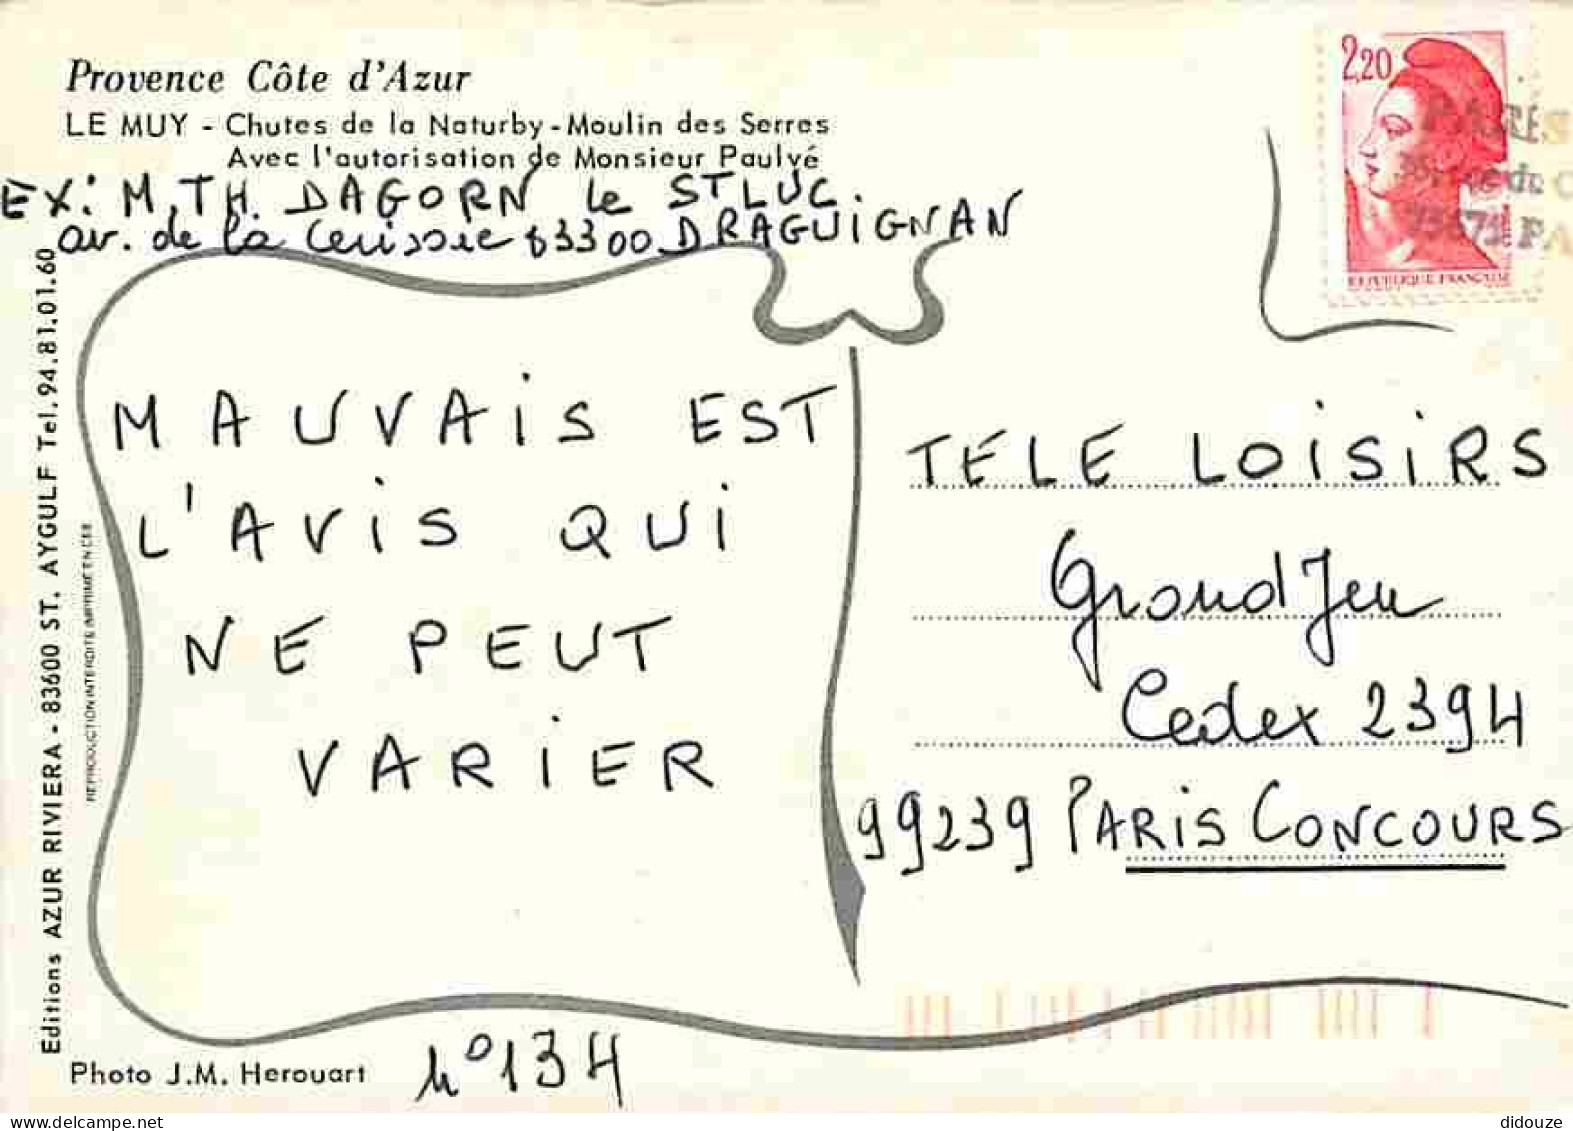 Provence Côte d'Azur
LE MUY - Chutes de la Naturby - Moulin des Serres
Avec l'autorisation de Monsieur Paulvé
EX: M.TH. DAGORN le ST LUC
av. de la Cerisaie 83300 DRAGUIGNAN
2,20
REPUBLIQUE FRANÇAISE
PARIS
MAUVAIS EST
L'AVIS QUI
NE PEUT
VARIER
TELE LOISIRS
Grand Jeu
Cedex 2394
99239 PARIS CONCOURS
Editions AZUR RIVIERA - 83600 ST. AYGULF Tel. 94.81.01.60
REPRODUCTION INTERDITE IMPRIMÉ EN CEE
Photo J.M. Herouart
n° 134
didouze